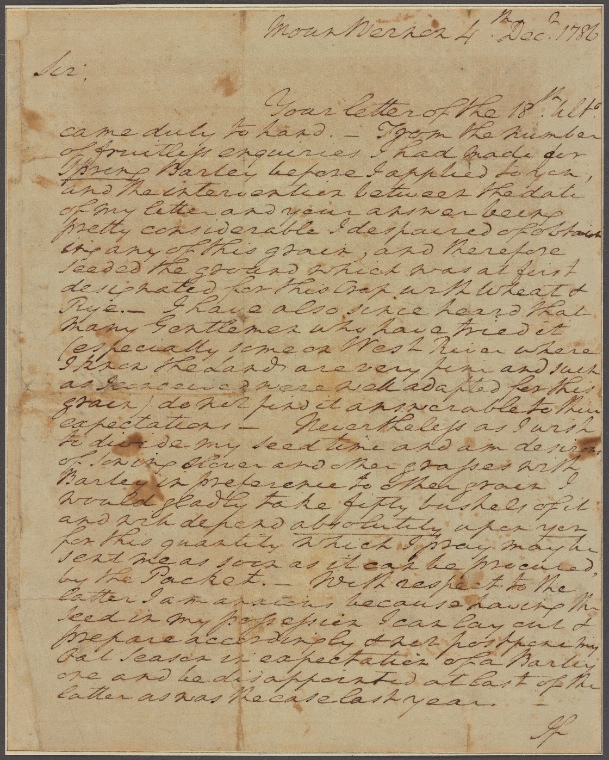 Mount Vernon 4th Decr. 1786
Sir,
Your letter of the 18th Ulto
came duly to hand. – From the number
of fruitless enquiries I had made for
Spring Barley before I applied to you,
and the intervention between the date
of my letter and your answer being
pretty considerable I despaired of obtain
ing any of this grain, and therefore
seeded the ground which was at first
designated for this Crop with Wheat &
Rye. – I have also since heard that
many Gentlemen who have tried it
(especially some on West River where
I know the Lands are very fine and such
as I conceived were well adapted for this
grain) do not find it answerable to their
expectations – Nevertheless as I wish
to divide my seed time and am desirous
of sowing clover and other grasses with
Barley in preference to other grain I
would gladly take fifty bushels of it
and will depend absolutely upon you
for this quantity which I pray may be
sent me as soon as it can be procured,
by the Packet. – With respect to the
latter I am anxious because having the
seed in my possession I can lay out &
prepare accordingly & not postpone my
Oat season in expectation of a Barley
one and be disappointed at last of the
latter as was the case last year. –
If